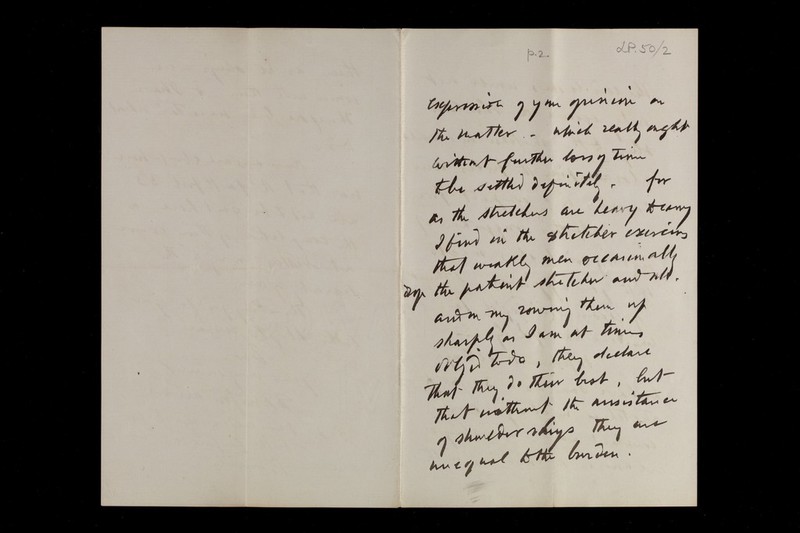 p.2
LP. 50/2
expression of your opinion on
the matter - which really ought
without further loss of time
to be settled definitely. for
as the stretchers are heavy to carry
I find in the stretcher exercises
that weakly men occasionally
drop the patient stretcher and all.
and on my rowing them up
sharply as I am at times
oblj'd to do, they declare
that they do their best, but
that without the assistance
of shoulder slings they are
unequal to the burden.